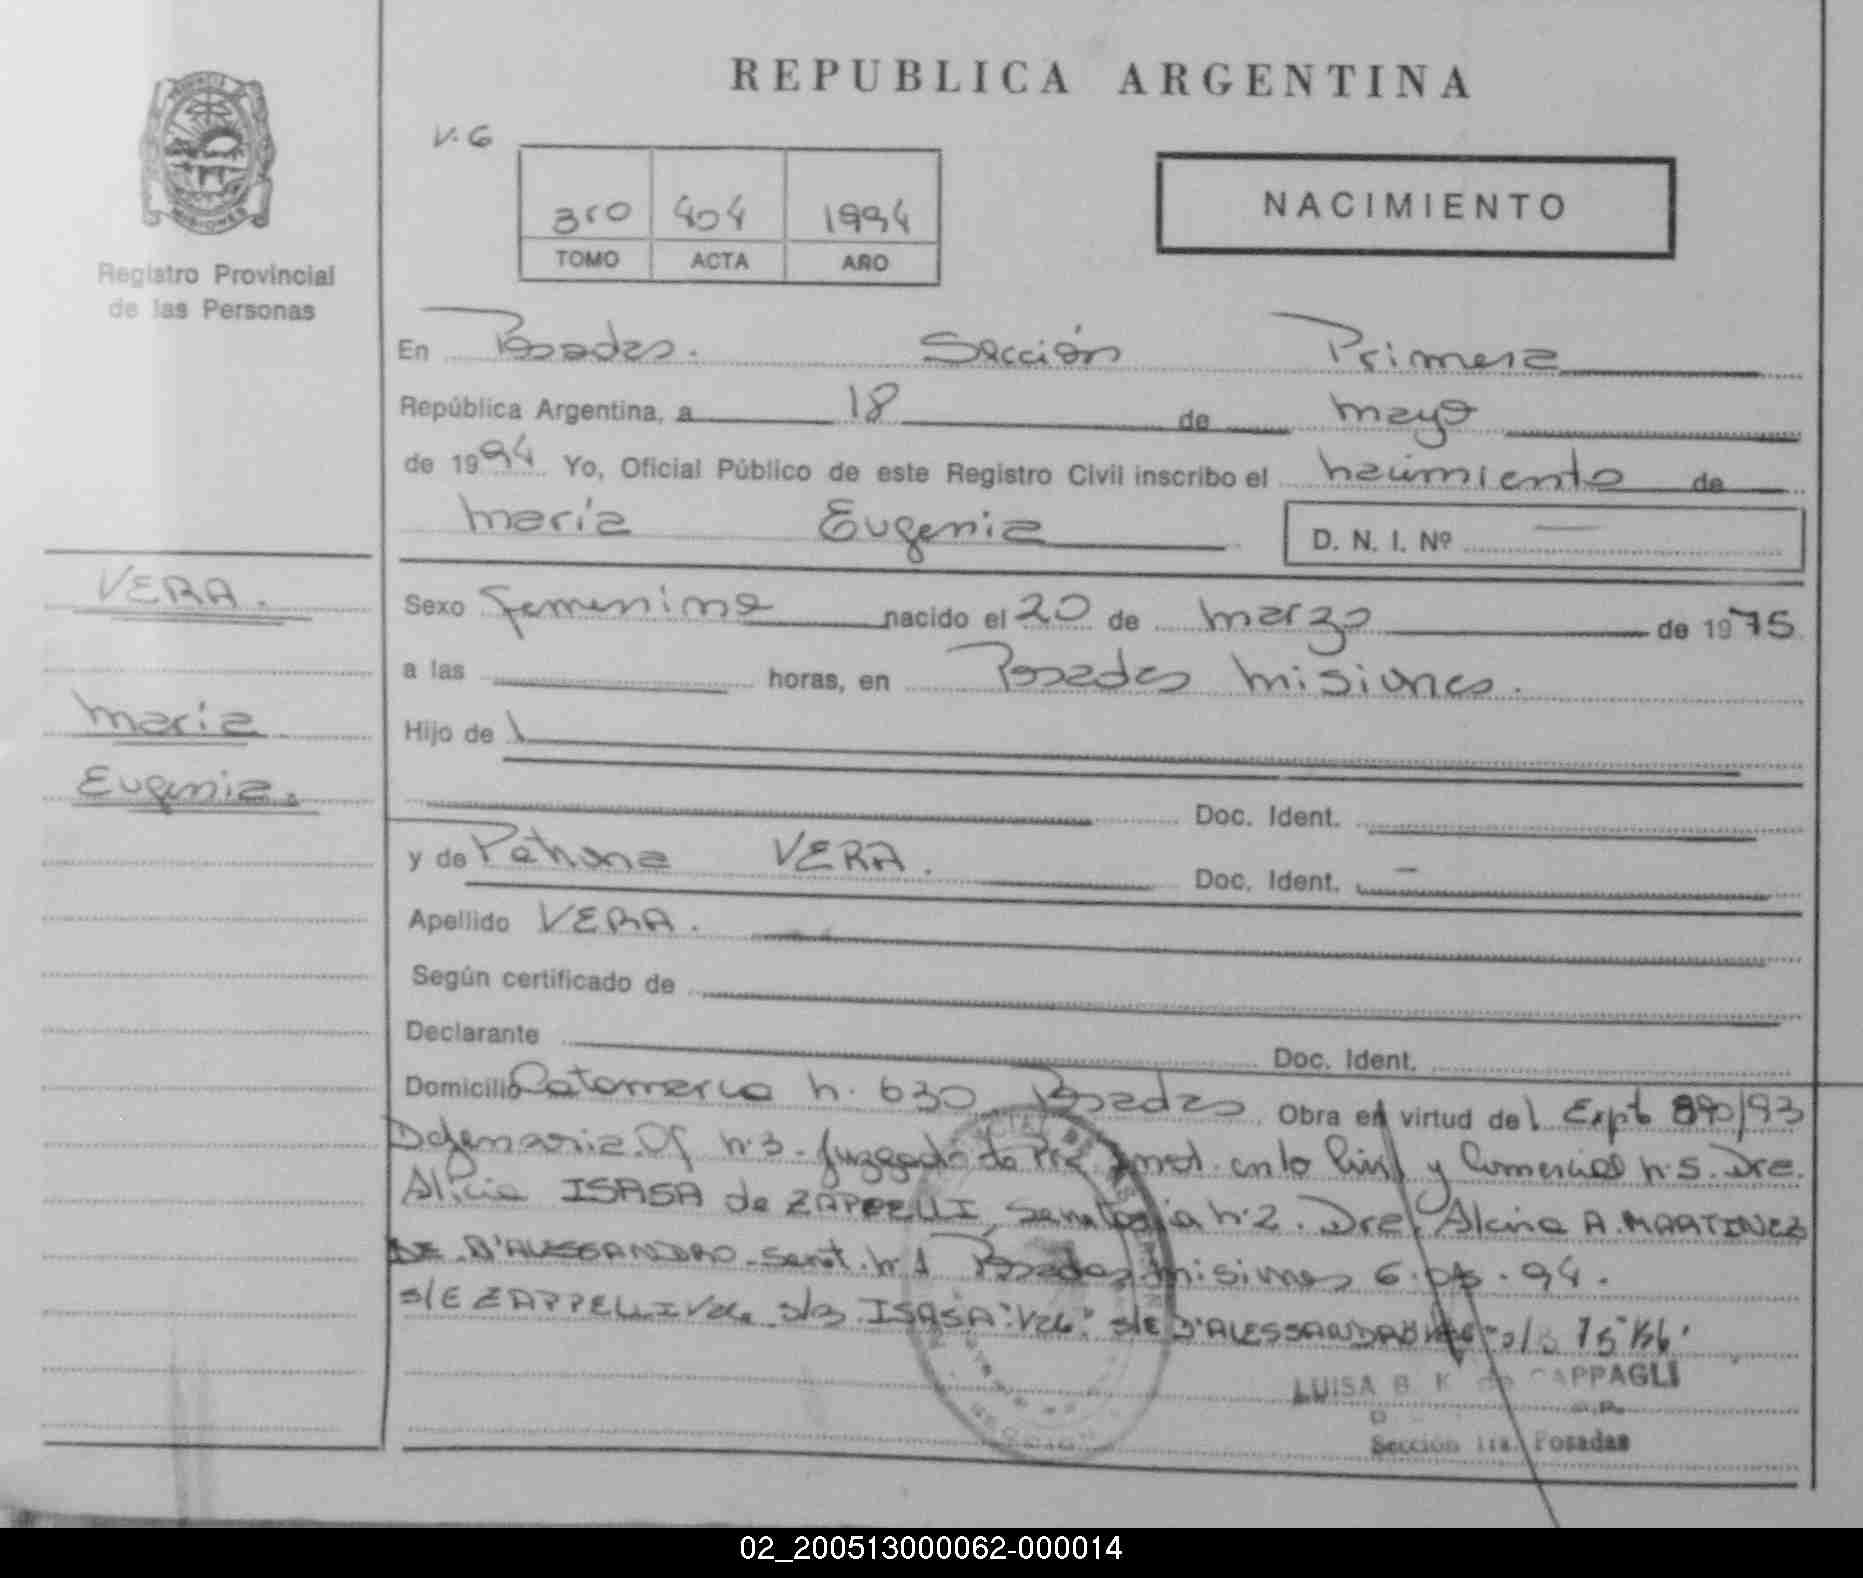 REPUBLICA ARGENTINA
V. G
3ro 404 1994
TOMO ACTA AÑO
NACIMIENTO
MISIONES
Registro Provincial
de las Personas
En Posadas. Sección Primera
República Argentina, a 18 de mayo
de 1994 Yo, Oficial Público de este Registro Civil inscribo el nacimiento de
María Eugenia
D. N. I. Nº —
VERA.
María
Eugenia.
Sexo femenino nacido el 20 de marzo de 1975
a las horas, en Posadas Misiones.
Hijo de
Doc. Ident.
y de VERA. Doc. Ident. —
Apellido VERA.
Según certificado de
Declarante Doc. Ident.
Domicilio Catamarca n. 630 Posadas Obra en virtud del Expte 890/93
Of n. 3 - Juzgado de Pra Inst. en lo Civil y Comercial n. 5. Dra.
Alicia ISASA de ZAPPELLI, n. 2. Dra. A. MARTINEZ
DE D'ALESSANDRO n. 1 Posadas Misiones 6. 94.
s/E ZAPPELLI Vale s/B ISASA "Vale" s/E D'ALESSANDRO s/B 75
LUISA B. K. de CAPPAGLI
Sección 1ra. Posadas
02_200513000062-000014